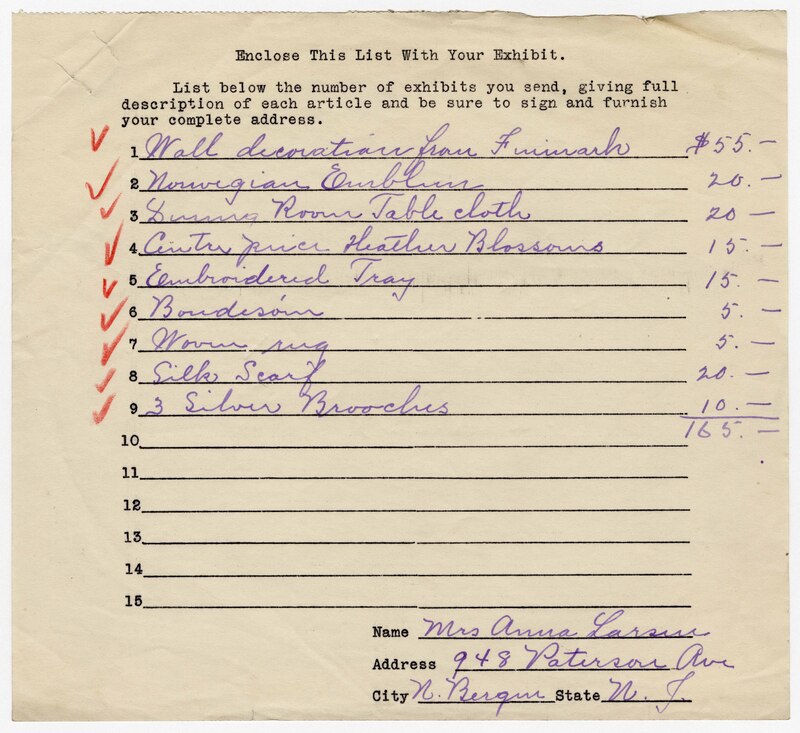 Enclose This List With Your Exhibit.
List below the number of exhibits you send, giving full
description of each article and be sure to sign and furnish
your complete address.
1 Wall decoration from Finmark $55.—
2 Norwegian Emblem 20.—
3 Dining Room Table cloth 20 —
4 Centre piece Heather Blossoms 15 —
5 Embroidered Tray 15.—
6 5.—
7 Woven rug 5.—
8 Silk Scarf 20.—
9 3 Silver Brooches 10.—
165.—
10
11
12
13
14
15
Name Mrs Anna Larsen
Address 948 Paterson Ave
City N. Bergen State N. J.